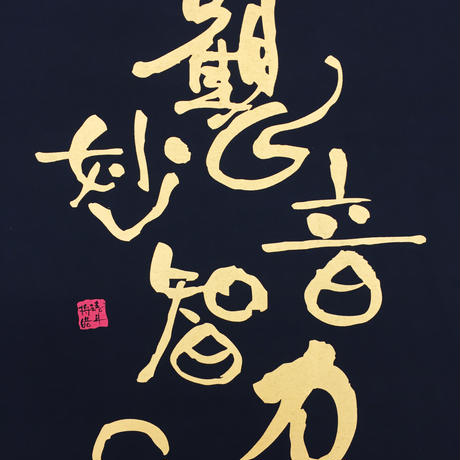 觀音力
妙智